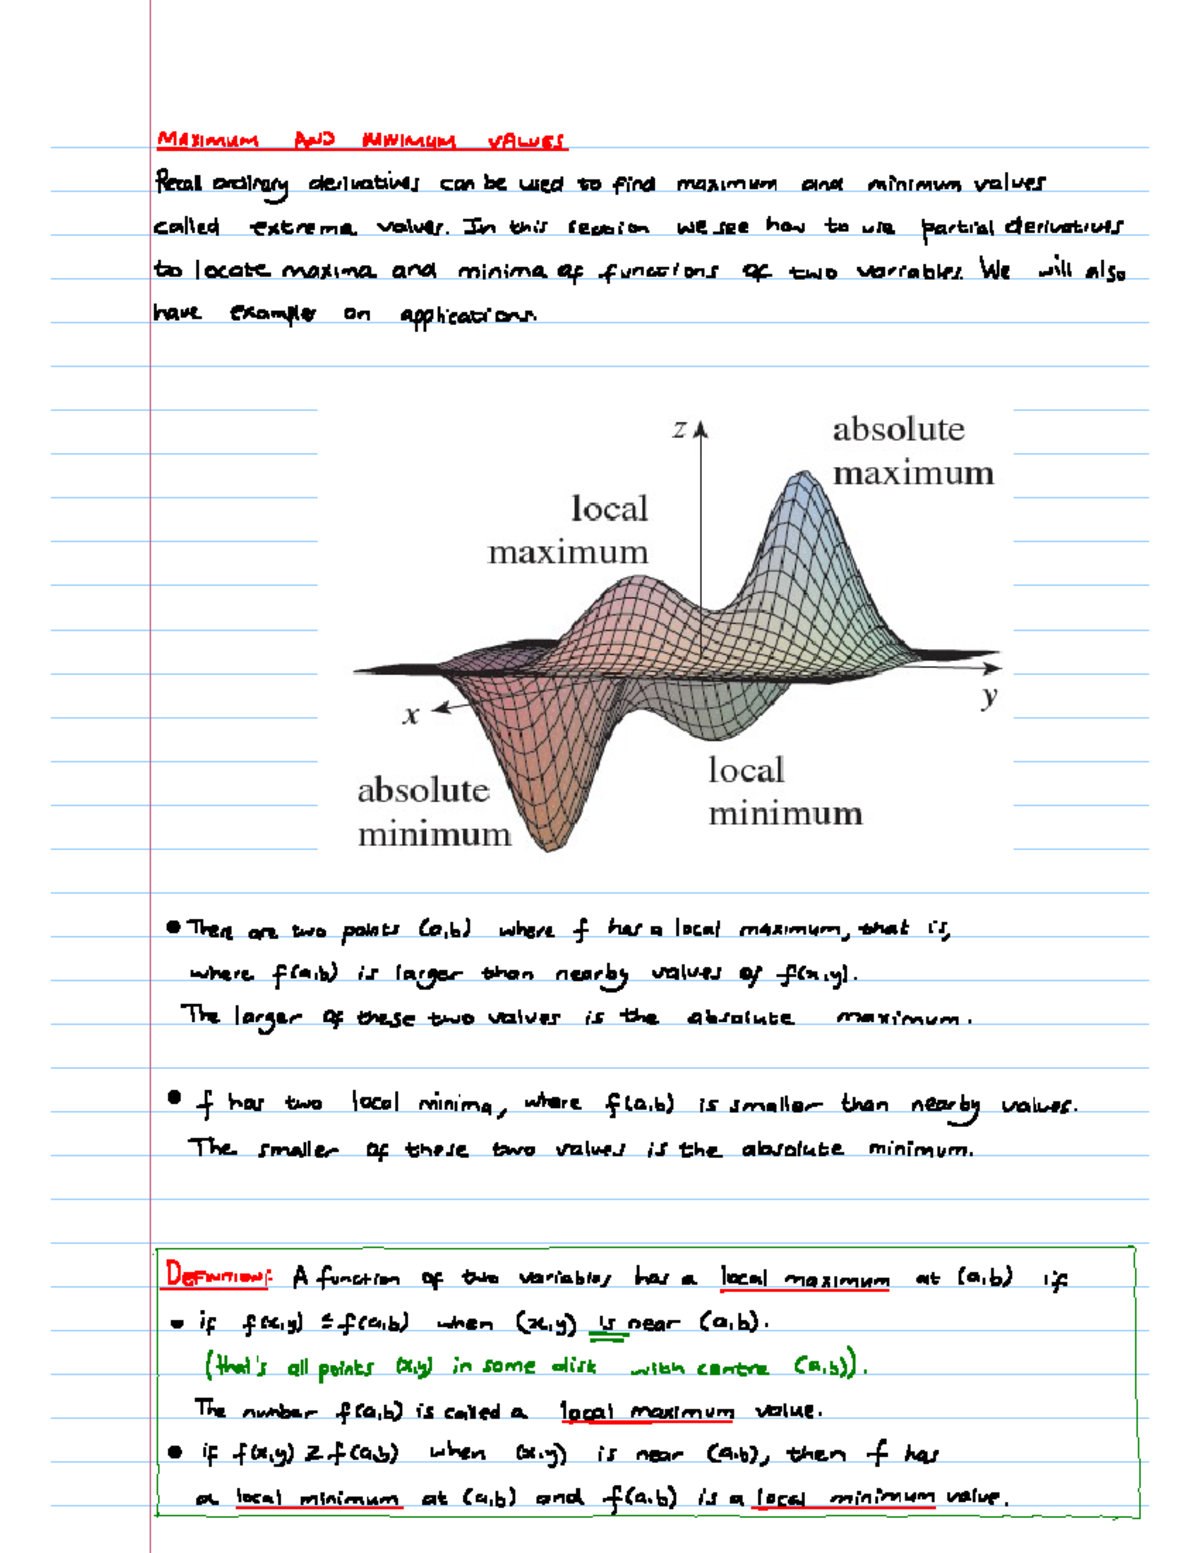 MAXIMUM AND MINIMUM VALUES
Recall ordinary derivatives can be used to find maximum and minimum values
called extreme values. In this section we see how to use partial derivatives
to locate maxima and minima of functions of two variables. We will also
have examples on applications.
z
absolute
maximum
local
maximum
x
y
absolute
minimum
local
minimum
• There are two points (a,b) where f has a local maximum, that is,
where f(a,b) is larger than nearby values of f(x,y).
The larger of these two values is the absolute maximum.
• f has two local minima, where f(a,b) is smaller than nearby values.
The smaller of these two values is the absolute minimum.
DEFINITION: A function of two variables has a local maximum at (a,b) if
• if f(x,y) ≤ f(a,b) when (x,y) is near (a,b).
(that's all points (x,y) in some disk with centre (a,b)).
The number f(a,b) is called a local maximum value.
• if f(x,y) ≥ f(a,b) when (x,y) is near (a,b), then f has
a local minimum at (a,b) and f(a,b) is a local minimum value.